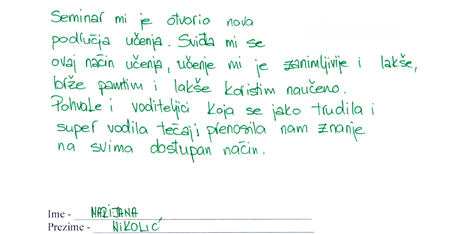 Seminar mi je otvorio nova
područja učenja. Sviđa mi se
ovaj način učenja, učenje mi je zanimljivije i lakše,
brže pamtim i lakše koristim naučeno.
Pohvale i voditeljici koja se jako trudila i
super vodila tečaj i prenosila nam znanje
na svima dostupan način.
Ime - MARIJANA
Prezime - NIKOLIĆ